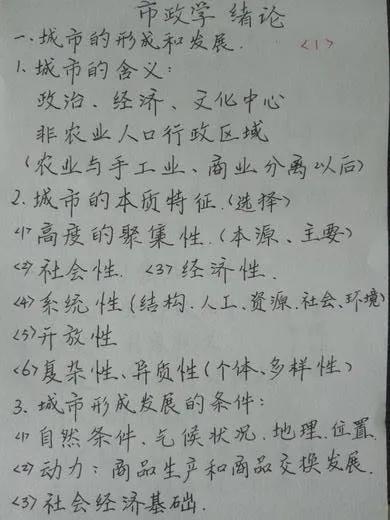 市政学 绪论
一.城市的形成和发展. <1>
1.城市的含义:
政治、经济、文化中心
非农业人口行政区域
(农业与手工业、商业分离以后)
2.城市的本质特征.(选择)
<1>高度的聚集性.(本源、主要)
<2>社会性. <3>经济性.
<4>系统性(结构.人工、资源.社会、环境)
<5>开放性
<6>复杂性、异质性(个体、多样性)
3.城市形成发展的条件:
<1>自然条件、气候状况.地理.位置.
<2>动力:商品生产和商品交换发展.
<3>社会经济基础.